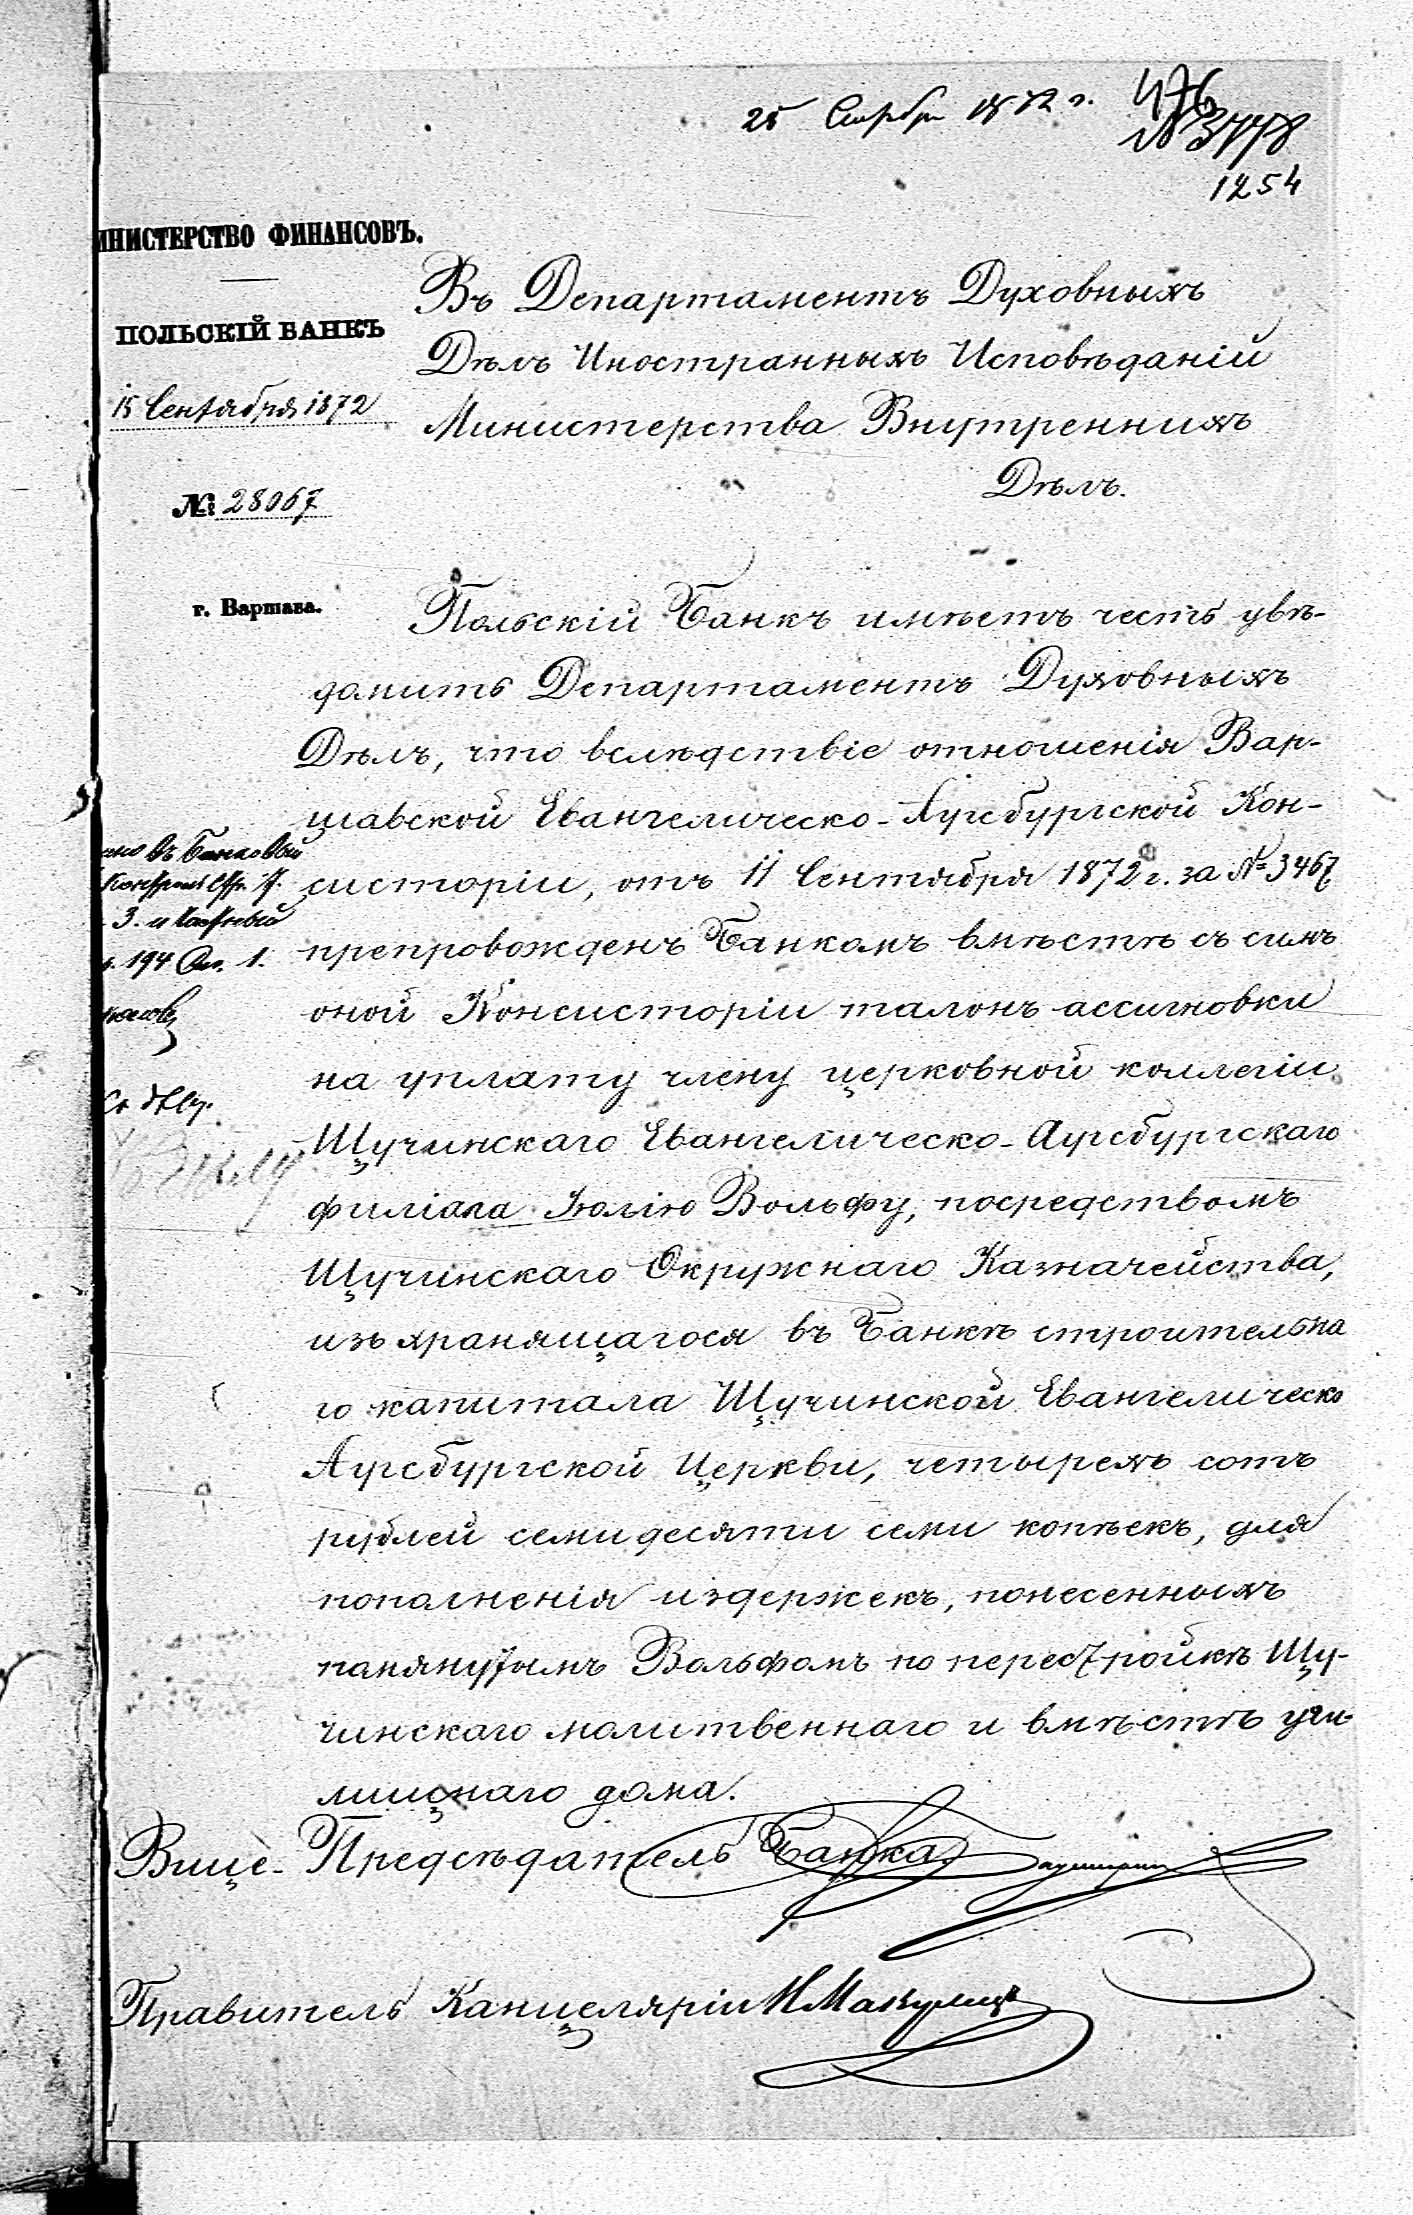 25 Сентября 1872 г.
476
№ 3778
1254
МИНИСТЕРСТВО ФИНАНСОВЪ.
ПОЛЬСКІЙ БАНКЪ
15 Сентября 1872
№ 28067
г. Варшава.
Въ Департаментъ Духовныхъ
Дѣлъ Иностранныхъ Исповѣданій
Министерства Внутреннихъ
Дѣлъ.
Польскій Банкъ имѣетъ честь увѣ-
домить Департаментъ Духовныхъ
Дѣлъ, что вслѣдствіе отношенія Вар-
шавской Евангелическо-Аугсбургской Кон-
систоріи, отъ 11 Сентября 1872 г. за № 3467
препровожденъ Банкомъ вмѣстѣ съ симъ
оной Консисторіи талонъ ассигновки
на уплату члену церковной коллегіи
Щучинскаго Евангелическо-Аугсбургскаго
филіала Юлію Вольфу, посредствомъ
Щучинскаго Окружнаго Казначейства,
изъ хранящагося въ Банкѣ строительна
го капитала Щучинской Евангелическо
Аугсбургской Церкви, четырехъ сотъ
рублей семидесяти семи копѣекъ, для
пополненія издержекъ, понесенныхъ
панянутымъ Вольфомъ по перестройкѣ Щу-
чинскаго молитвеннаго и вмѣстѣ учи-
лищнаго дома.
въ Банковый
3. и
194 1.
Вице-Предсѣдатель Банка
Правитель Канцеляріи